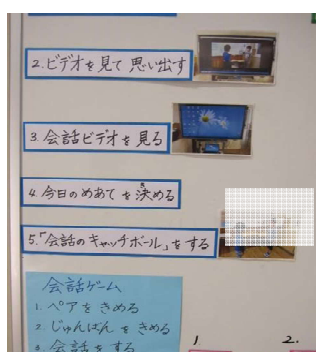 2.ビデオを見て思い出す
3.会話ビデオを見る
4.今日のめあてを決める
5.「会話のキャッチボール」をする
会話ゲーム
1.ペアをきめる
2.じゅんばんをきめる
3.会話をする
1
2.